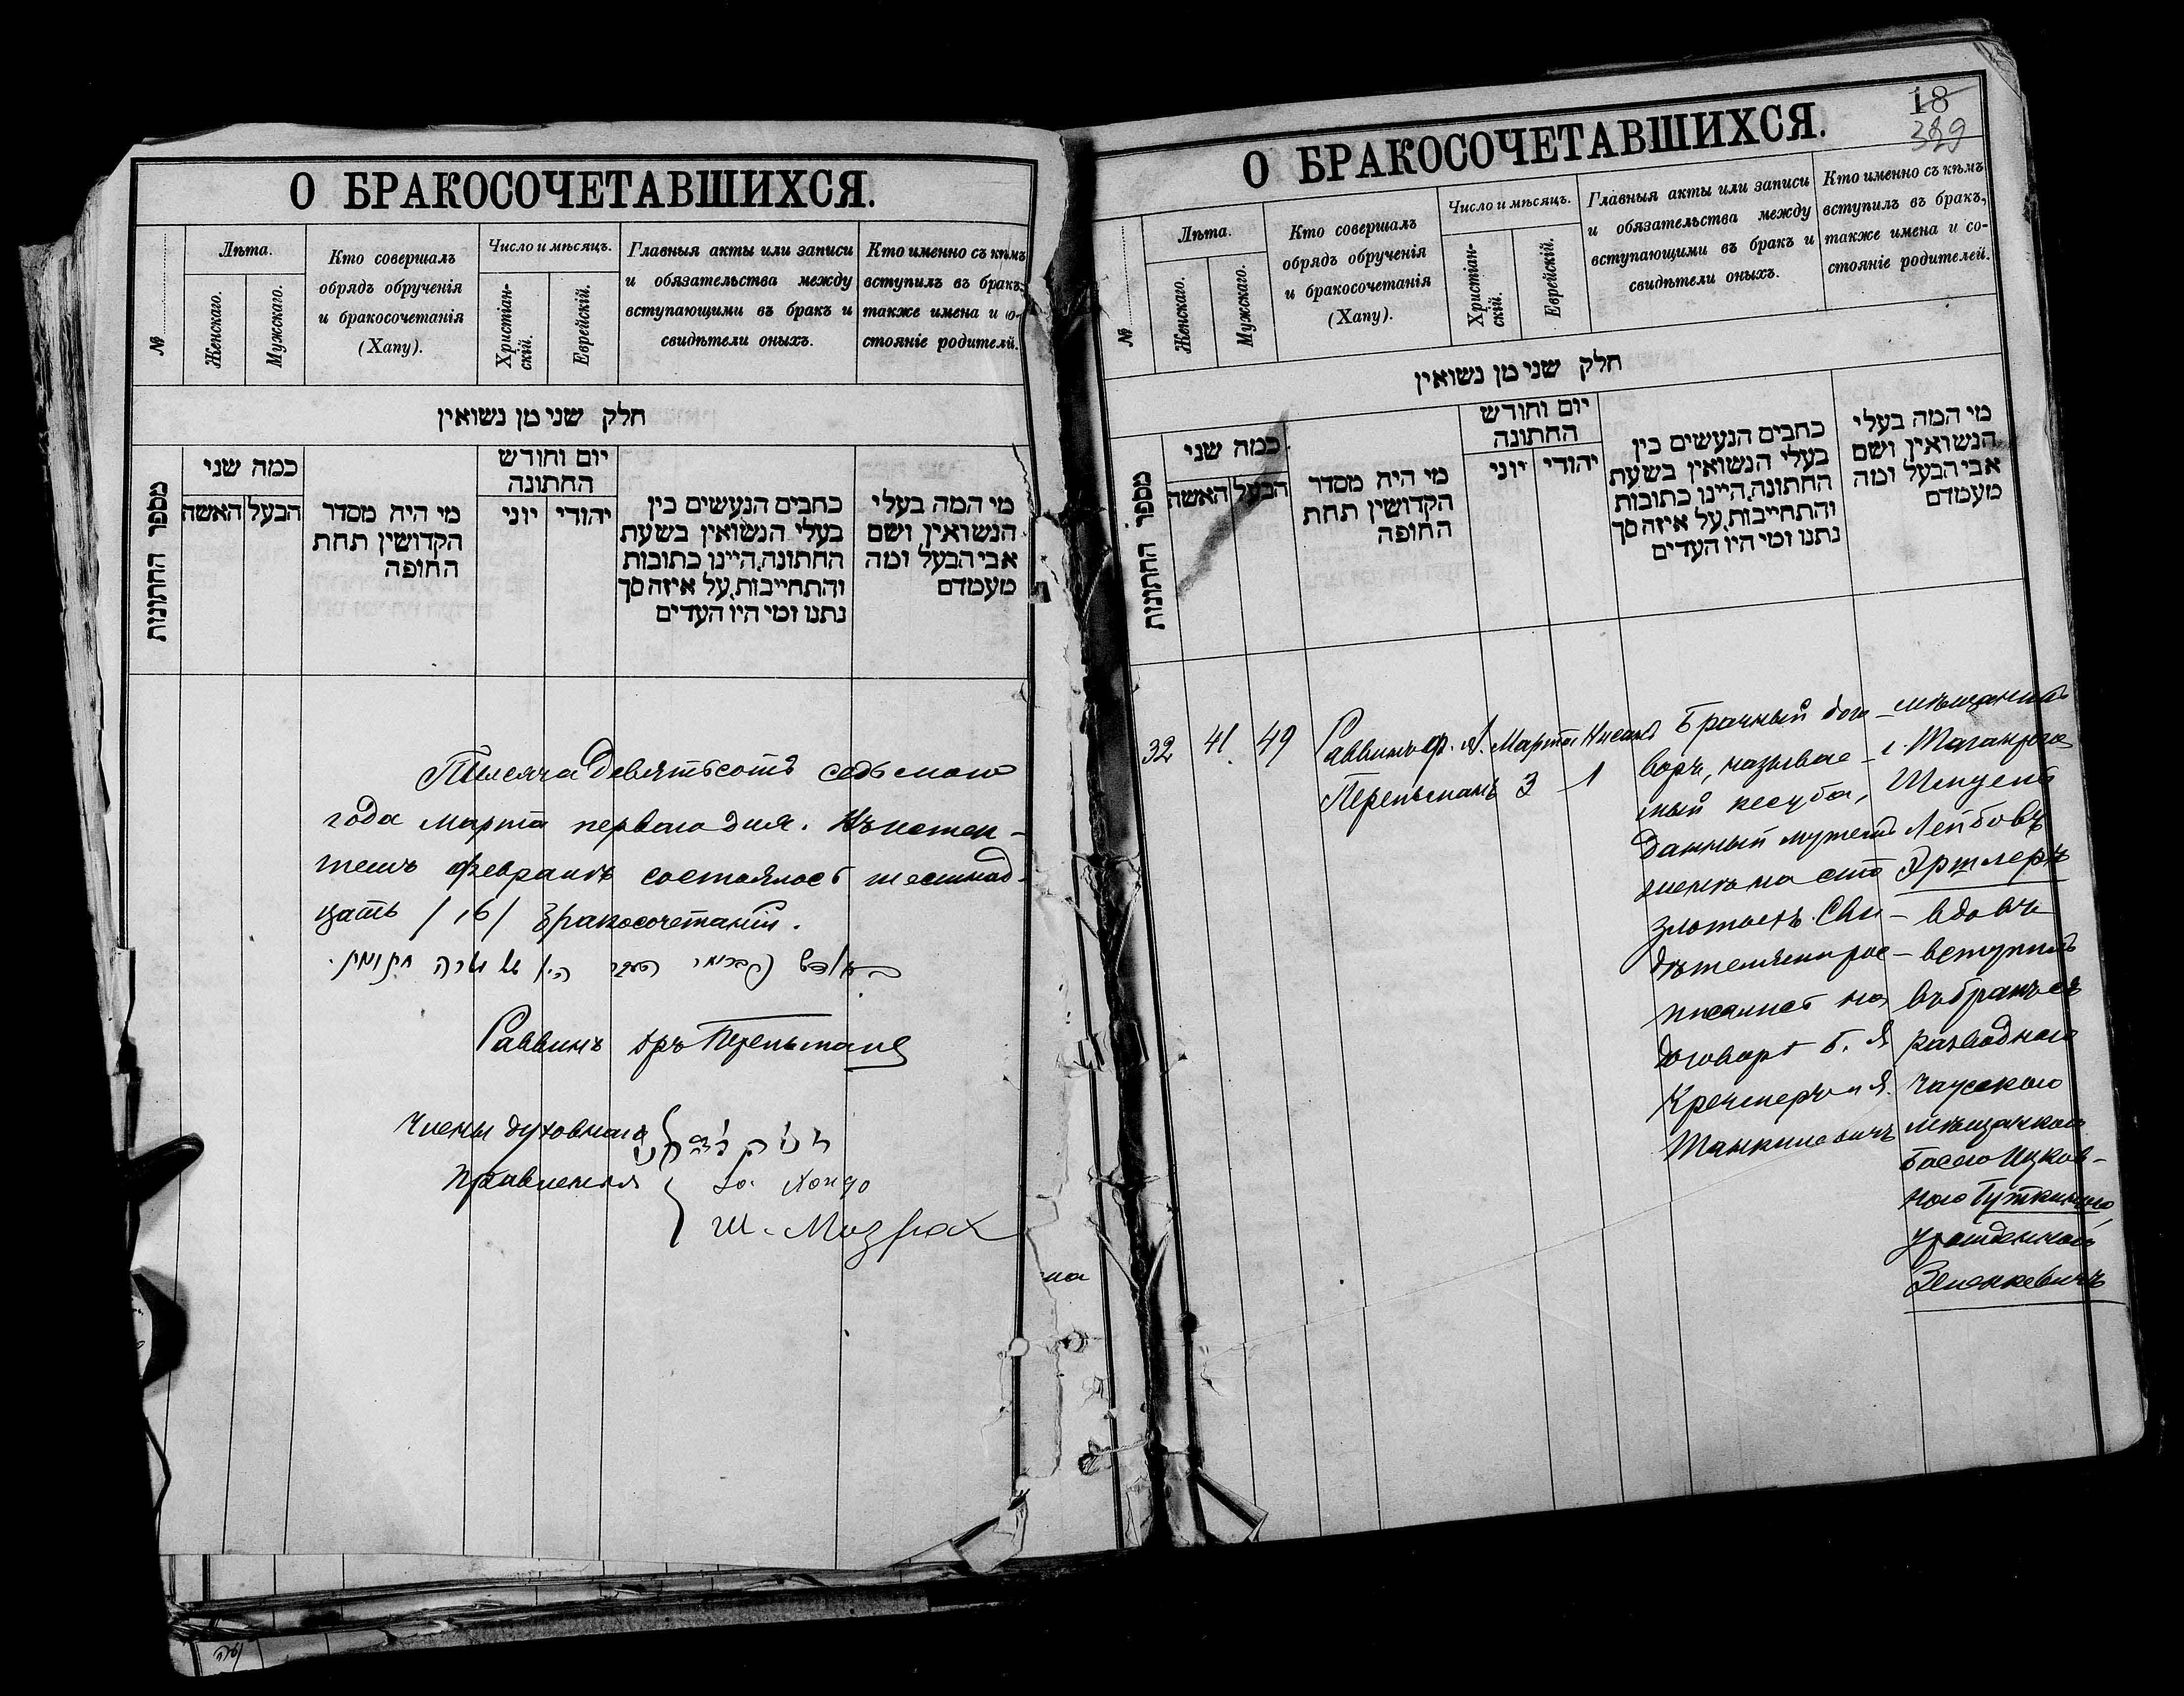 О БРАКОСОЧЕТАВШИХСЯ.
№
Лѣта.
Женскаго.
Мужскаго.
Кто совершалъ
обрядъ обрученія
и бракосочетанія
(Хапу).
Число и мѣсяцъ.
Христіан-
скій.
Еврейскій.
Главныя акты или записи
и обязательства между
вступающими въ бракъ и
свидѣтели оныхъ.
Кто именно съ кѣмъ
вступилъ въ бракъ,
также имена и со-
стояніе родителй.
חלק שני מן נשואין
מספר החתונות
כמה שני
הבעל
האשה
מי היה מסדר
הקדושין תחת
החופה
יום וחודש
החתונה
יהודי
יוני
כתבים הנעשים בין
בעלי הנשואין בשעת
החתונה, היינו כתובות
והתחייבות, על איזה סך
נתנו ומי היו העדים
מי המה בעלי
הנשואין ושם
אבי הבעל ומה
מעמדם
Тысяча девятьсотъ седьмого
года марта перваго дня. Въ истек-
шемъ февралѣ состоялось шестнад-
цать /16/ бракосочетаній.
Раввинъ дръ Перельманъ
Члены духовнаго
правленія
Ш. Мизрах
18
329
О БРАКОСОЧЕТАВШИХСЯ.
№
Лѣта.
Женскаго.
Мужскаго.
Кто совершалъ
обрядъ обрученія
и бракосочетанія
(Хапу).
Число и мѣсяцъ.
Христіан-
скій.
Еврейскій.
Главныя акты или записи
и обязательства между
вступающими въ бракъ и
свидѣтели оныхъ.
Кто именно съ кѣмъ
вступилъ въ бракъ,
также имена и со-
стояніе родителей.
חלק שני מן נשואין
מספר החתונות
כמה שני
הבעל
האשה
מי היה מסדר
הקדושין תחת
החופה
יום וחודש
החתונה
יהודי
יוני
כתבים הנעשים בין
בעלי הנשואין בשעת
החתונה, היינו כתובות
והתחייבות, על איזה סך
נתנו ומי היו העדים
מי המה בעלי
הנשואין ושם
אבי הבעל ומה
מעמדם
32
41
49
Раввинъ
Перельманъ
Марта
3
Нисана
1
Брачный дого-
воръ, называе-
мый кесуба,
данный мужемъ
женѣ на сто
злотыхъ. Сви-
дѣтелями рос-
писались на
договорѣ Б. Я
Кремеръ и Я.
Танкилевичъ
мѣщанинъ
г. Таганрога
Шмуель
Лейбовъ
Эршлеръ
вдовъ
вступилъ
въ бракъ съ
разводною
чаусскою
мѣщанкою
Басею Ицков-
ною Гуткиною,
урожденною
Зеленкевичъ